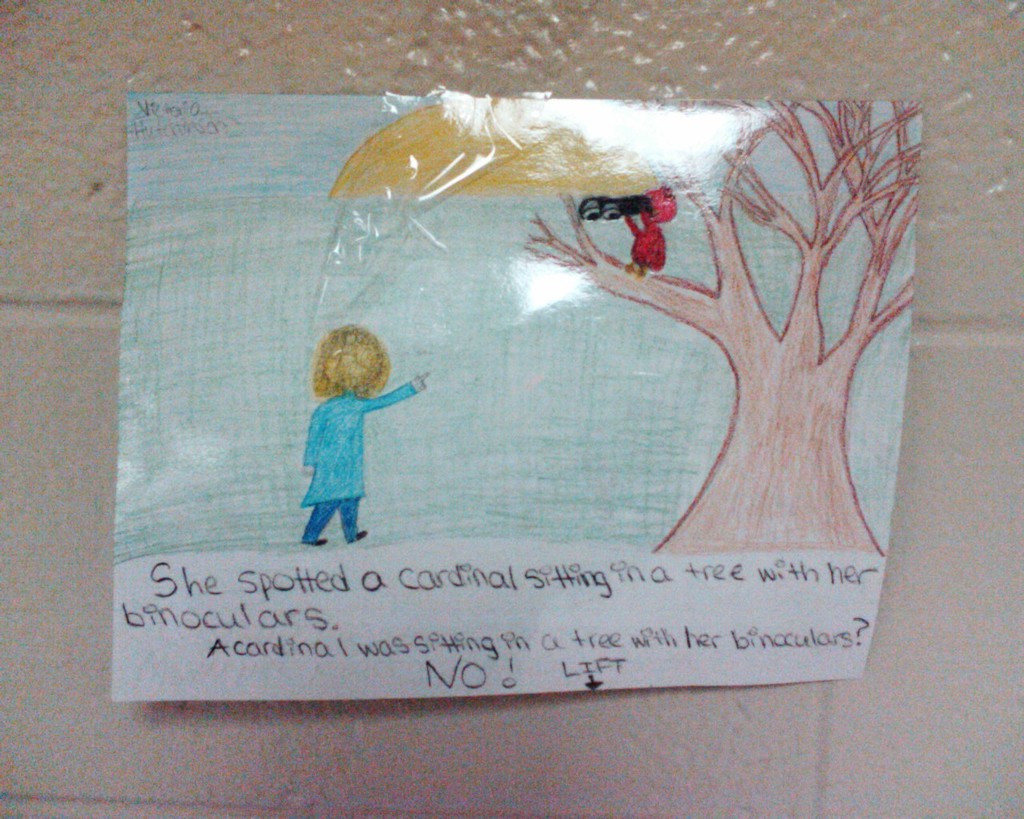 Victoria
Hutchinson
She spotted a cardinal sitting in a tree with her
binoculars.
A cardinal was sitting in a tree with her binoculars?
NO! LIFT